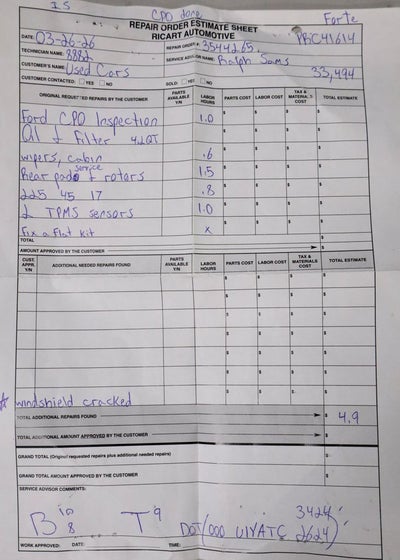 I S
CPO done
Forte
REPAIR ORDER ESTIMATE SHEET
RICART AUTOMOTIVE
PRC41614
DATE: 03-26-26
REPAIR ORDER #: 3544265
TECHNICIAN NAME: 8882
SERVICE ADVISOR NAME: Ralph Sams
CUSTOMER'S NAME: Used Cars
33,494
CUSTOMER CONTACTED: YES NO
SOLD: YES NO
ORIGINAL REQUESTED REPAIRS BY THE CUSTOMER PARTS AVAILABLE Y/N LABOR HOURS PARTS COST LABOR COST TAX & MATERIALS COST TOTAL ESTIMATE
Ford CPO Inspection 1.0
Oil & Filter 4.2QT
wipers, cabin .6
Rear pads service & rotors 1.5
225 45 17 .8
2 TPMS sensors 1.0
Fix a flat kit x
TOTAL
AMOUNT APPROVED BY THE CUSTOMER
CUST. APPR. Y/N ADDITIONAL NEEDED REPAIRS FOUND PARTS AVAILABLE Y/N LABOR HOURS PARTS COST LABOR COST TAX & MATERIALS COST TOTAL ESTIMATE
windshield cracked
TOTAL ADDITIONAL REPAIRS FOUND $ 4.9
TOTAL ADDITIONAL AMOUNT APPROVED BY THE CUSTOMER $
GRAND TOTAL (Original requested repairs plus additional needed repairs) $
GRAND TOTAL AMOUNT APPROVED BY THE CUSTOMER $
SERVICE ADVISOR COMMENTS:
B 10 8 T 9 3424
DOT 2624
WORK APPROVED: DATE: TIME: